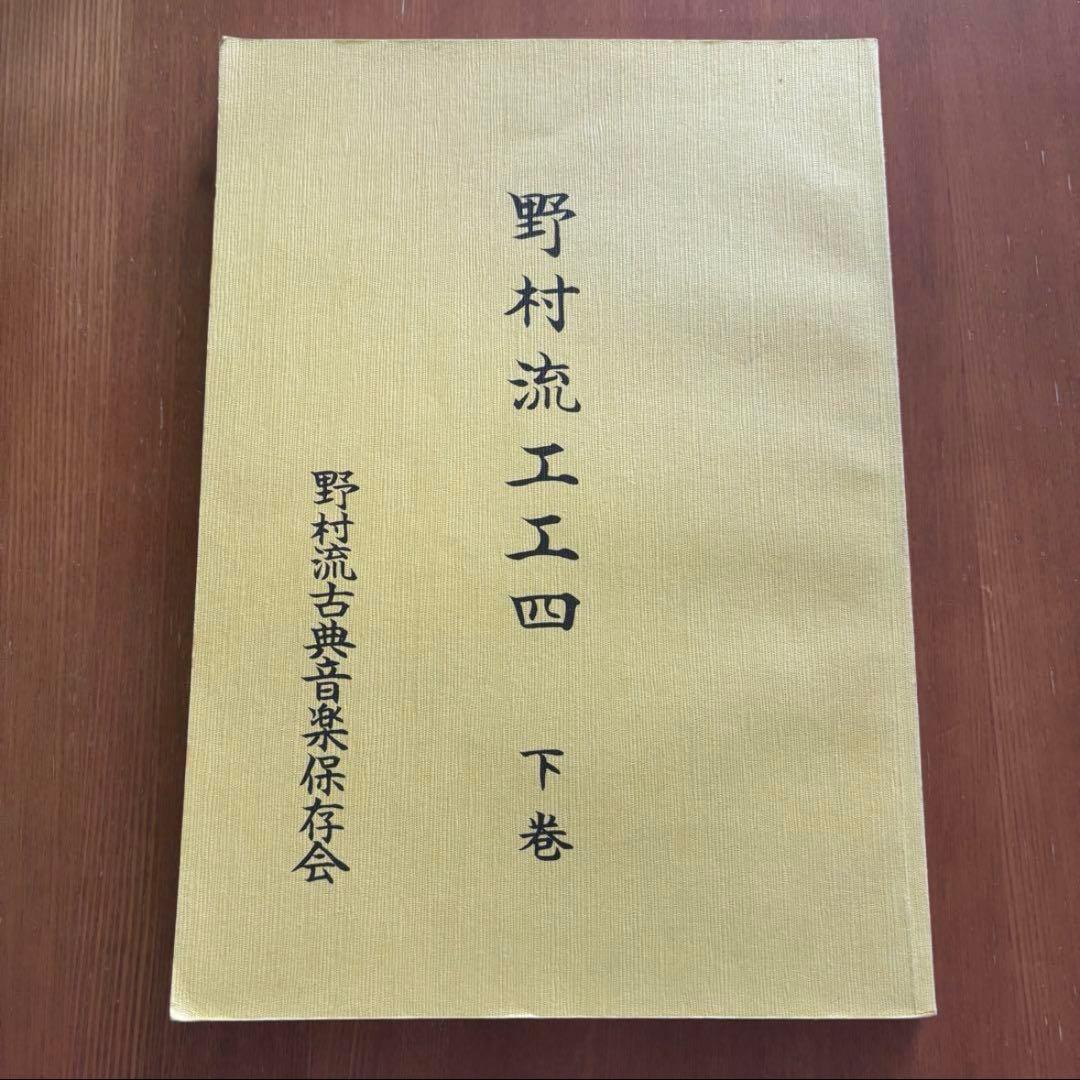 野村流工工四 下巻
野村流古典音楽保存会